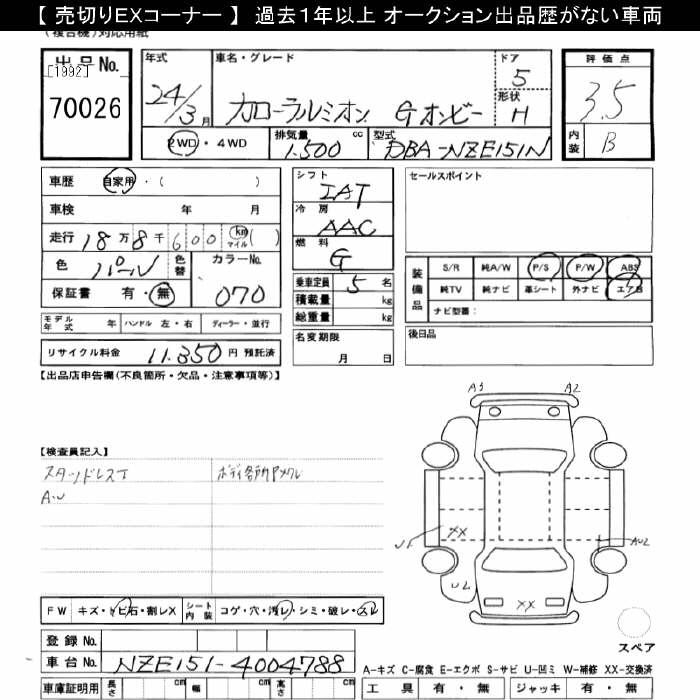 【 売切りEXコーナー 】 過去1年以上 オークション出品歴がない車両
(複合機)対応用紙
出品No.
[1992]
70026
年式
24/3月
車名・グレード
カローラルミオン Gオンビー
ドア
5
形状
H
2WD・4WD
排気量
1.500 cc
型式
DBA-NZE151N
評価点
3.5
内装
B
車歴 自家用・( )
車検 年 月
走行 18万8千600 km マイル ( )
色 パール 色替
カラーNo.
070
保証書 有・無
シフト
IAT
冷房
AAC
燃料
G
乗車定員 5 名
積載量 kg
総重量 kg
セールスポイント
装備品
S/R 純A/W P/S P/W ABS
純TV 純ナビ 革シート 外ナビ エアB
ナビ型番:
モデル年式 年 ハンドル 左・右 ディーラー・並行
リサイクル料金 11.350 円 預託済
名変期限
月 日
後日品
【出品店申告欄(不良箇所・欠品・注意事項等)】
【検査員記入】
スタッドレスT
A・W
A3 A2
XX
U1
AU2
U2
XX
スペア
FW キズ・トビ石・割レX
シート内装 コゲ・穴・汚レ・シミ・破レ・スレ
登録No.
車台No. NZE151-4004788
車庫証明用 長さ cm 幅 cm 高さ cm
A-キズ C-腐食 E-エクボ S-サビ U-凹ミ W-補修 XX-交換済
工具 有・無 ジャッキ 有・無